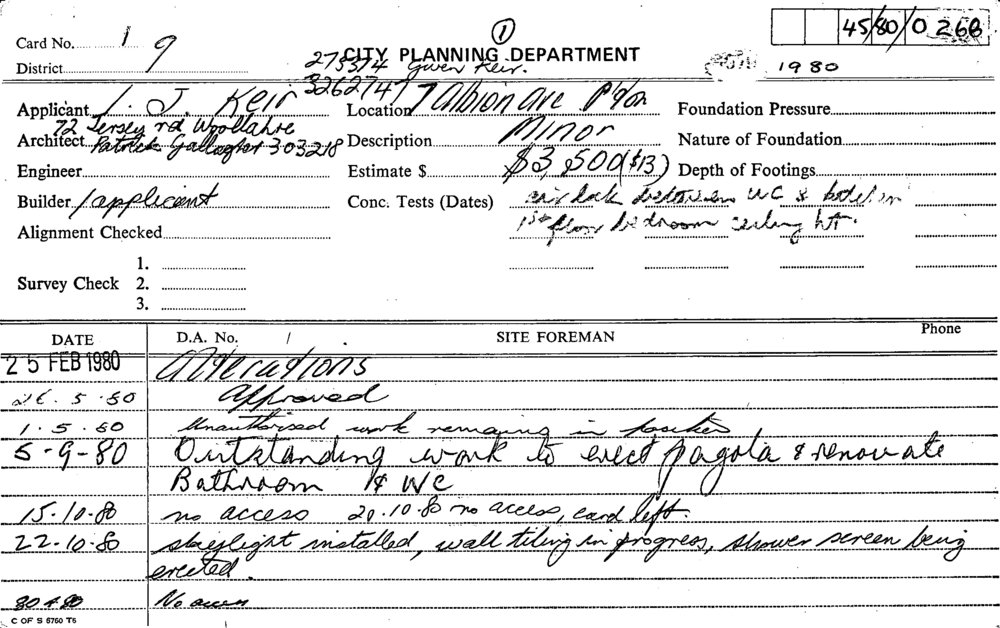 45/80/0 266
①
Card No. 1 9
CITY PLANNING DEPARTMENT
District
278374 Gwen Keir.
3262747
1980
Applicant I. J. Keir
Location 7 Albion Ave
Foundation Pressure
72 Jersey rd Woollahra
Architect Patrick Gallagher 303218
Description Minor
Nature of Foundation
Engineer
Estimate $ $3,500 ($13)
Depth of Footings
Builder / applicant
Conc. Tests (Dates) air lock between WC & kitchen
Alignment Checked
1st floor bedroom ceiling ht.
Survey Check
1.
2.
3.
DATE D.A. No. / SITE FOREMAN Phone
25 FEB 1980 Alterations
26.5.80 Approved
1.5.80 Unauthorised work remaining in
5-9-80 Outstanding work to erect pagola & renovate
Bathroom & WC
15.10.80 no access 20.10.80 no access, card left.
22.10.80 skeylight installed, wall tiling in progress, shower screen being
erected.
No access
C OF S 6760 T5